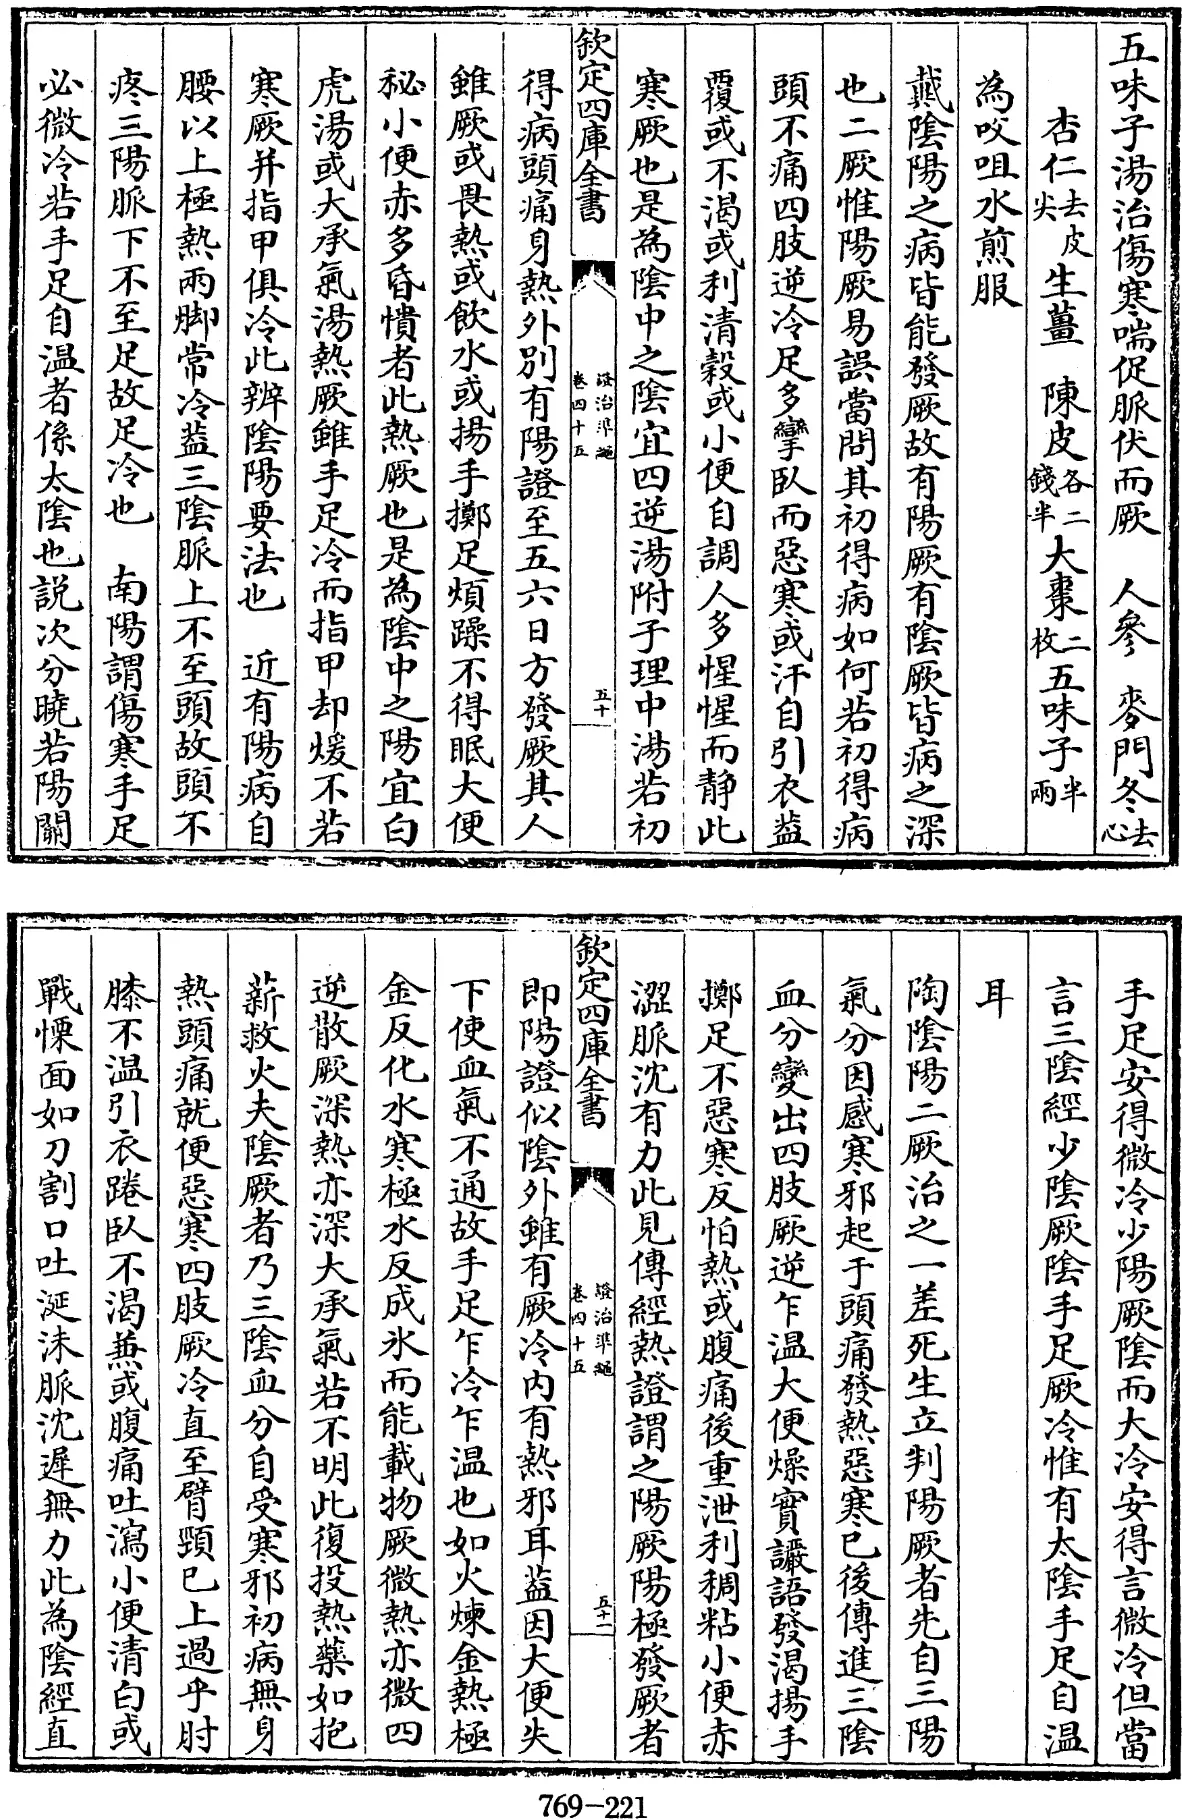 五味子湯治傷寒喘促脈伏而厥　人參　麥門冬去心
杏仁去皮尖生薑　陳皮各二錢半大棗二枚五味子半兩
為㕮咀水煎服
戴陰陽之病皆能發厥故有陽厥有陰厥皆病之深
也二厥惟陽厥易誤當問其初得病如何若初得病
頭不痛四肢逆冷足多攣臥而惡寒或汗自引衣蓋
覆或不渴或利清穀或小便自調人多惺惺而静此
寒厥也是為陰中之陰宜四逆湯附子理中湯若初
欽定四庫全書　證治準繩卷四十五　五十
得病頭痛身熱外別有陽證至五六日方發厥其人
雖厥或畏熱或飲水或揚手擲足煩躁不得眠大便
秘小便赤多昏憒者此熱厥也是為陰中之陽宜白
虎湯或大承氣湯熱厥雖手足冷而指甲却煖不若
寒厥并指甲俱冷此辨陰陽要法也　近有陽病自
腰以上極熱兩脚常冷蓋三陰脈上不至頭故頭不
疼三陽脈下不至足故足冷也　南陽謂傷寒手足
必微冷若手足自温者係太陰也説次分曉若陽關
手足安得微冷少陽厥陰而大冷安得言微冷但當
言三陰經少陰厥陰手足厥冷惟有太陰手足自温
耳
陶陰陽二厥治之一差死生立判陽厥者先自三陽
氣分因感寒邪起于頭痛發熱惡寒已後傳進三陰
血分變出四肢厥逆乍温大便燥實譫語發渴揚手
擲足不惡寒反怕熱或腹痛後重泄利稠粘小便赤
澀脈沈有力此見傳經熱證謂之陽厥陽極發厥者
欽定四庫全書　證治準繩卷四十五　五十一
即陽證似陰外雖有厥冷内有熱邪耳蓋因大便失
下使血氣不通故手足乍冷乍温也如火煉金熱極
金反化水寒極水反成氷而能載物厥微熱亦微四
逆散厥深熱亦深大承氣若不明此復投熱藥如抱
薪救火夫陰厥者乃三陰血分自受寒邪初病無身
熱頭痛就便惡寒四肢厥冷直至臂頸已上過乎肘
膝不温引衣踡臥不渴兼或腹痛吐瀉小便清白或
戰慄面如刀割口吐涎沫脈沈遲無力此為陰經直
769-221